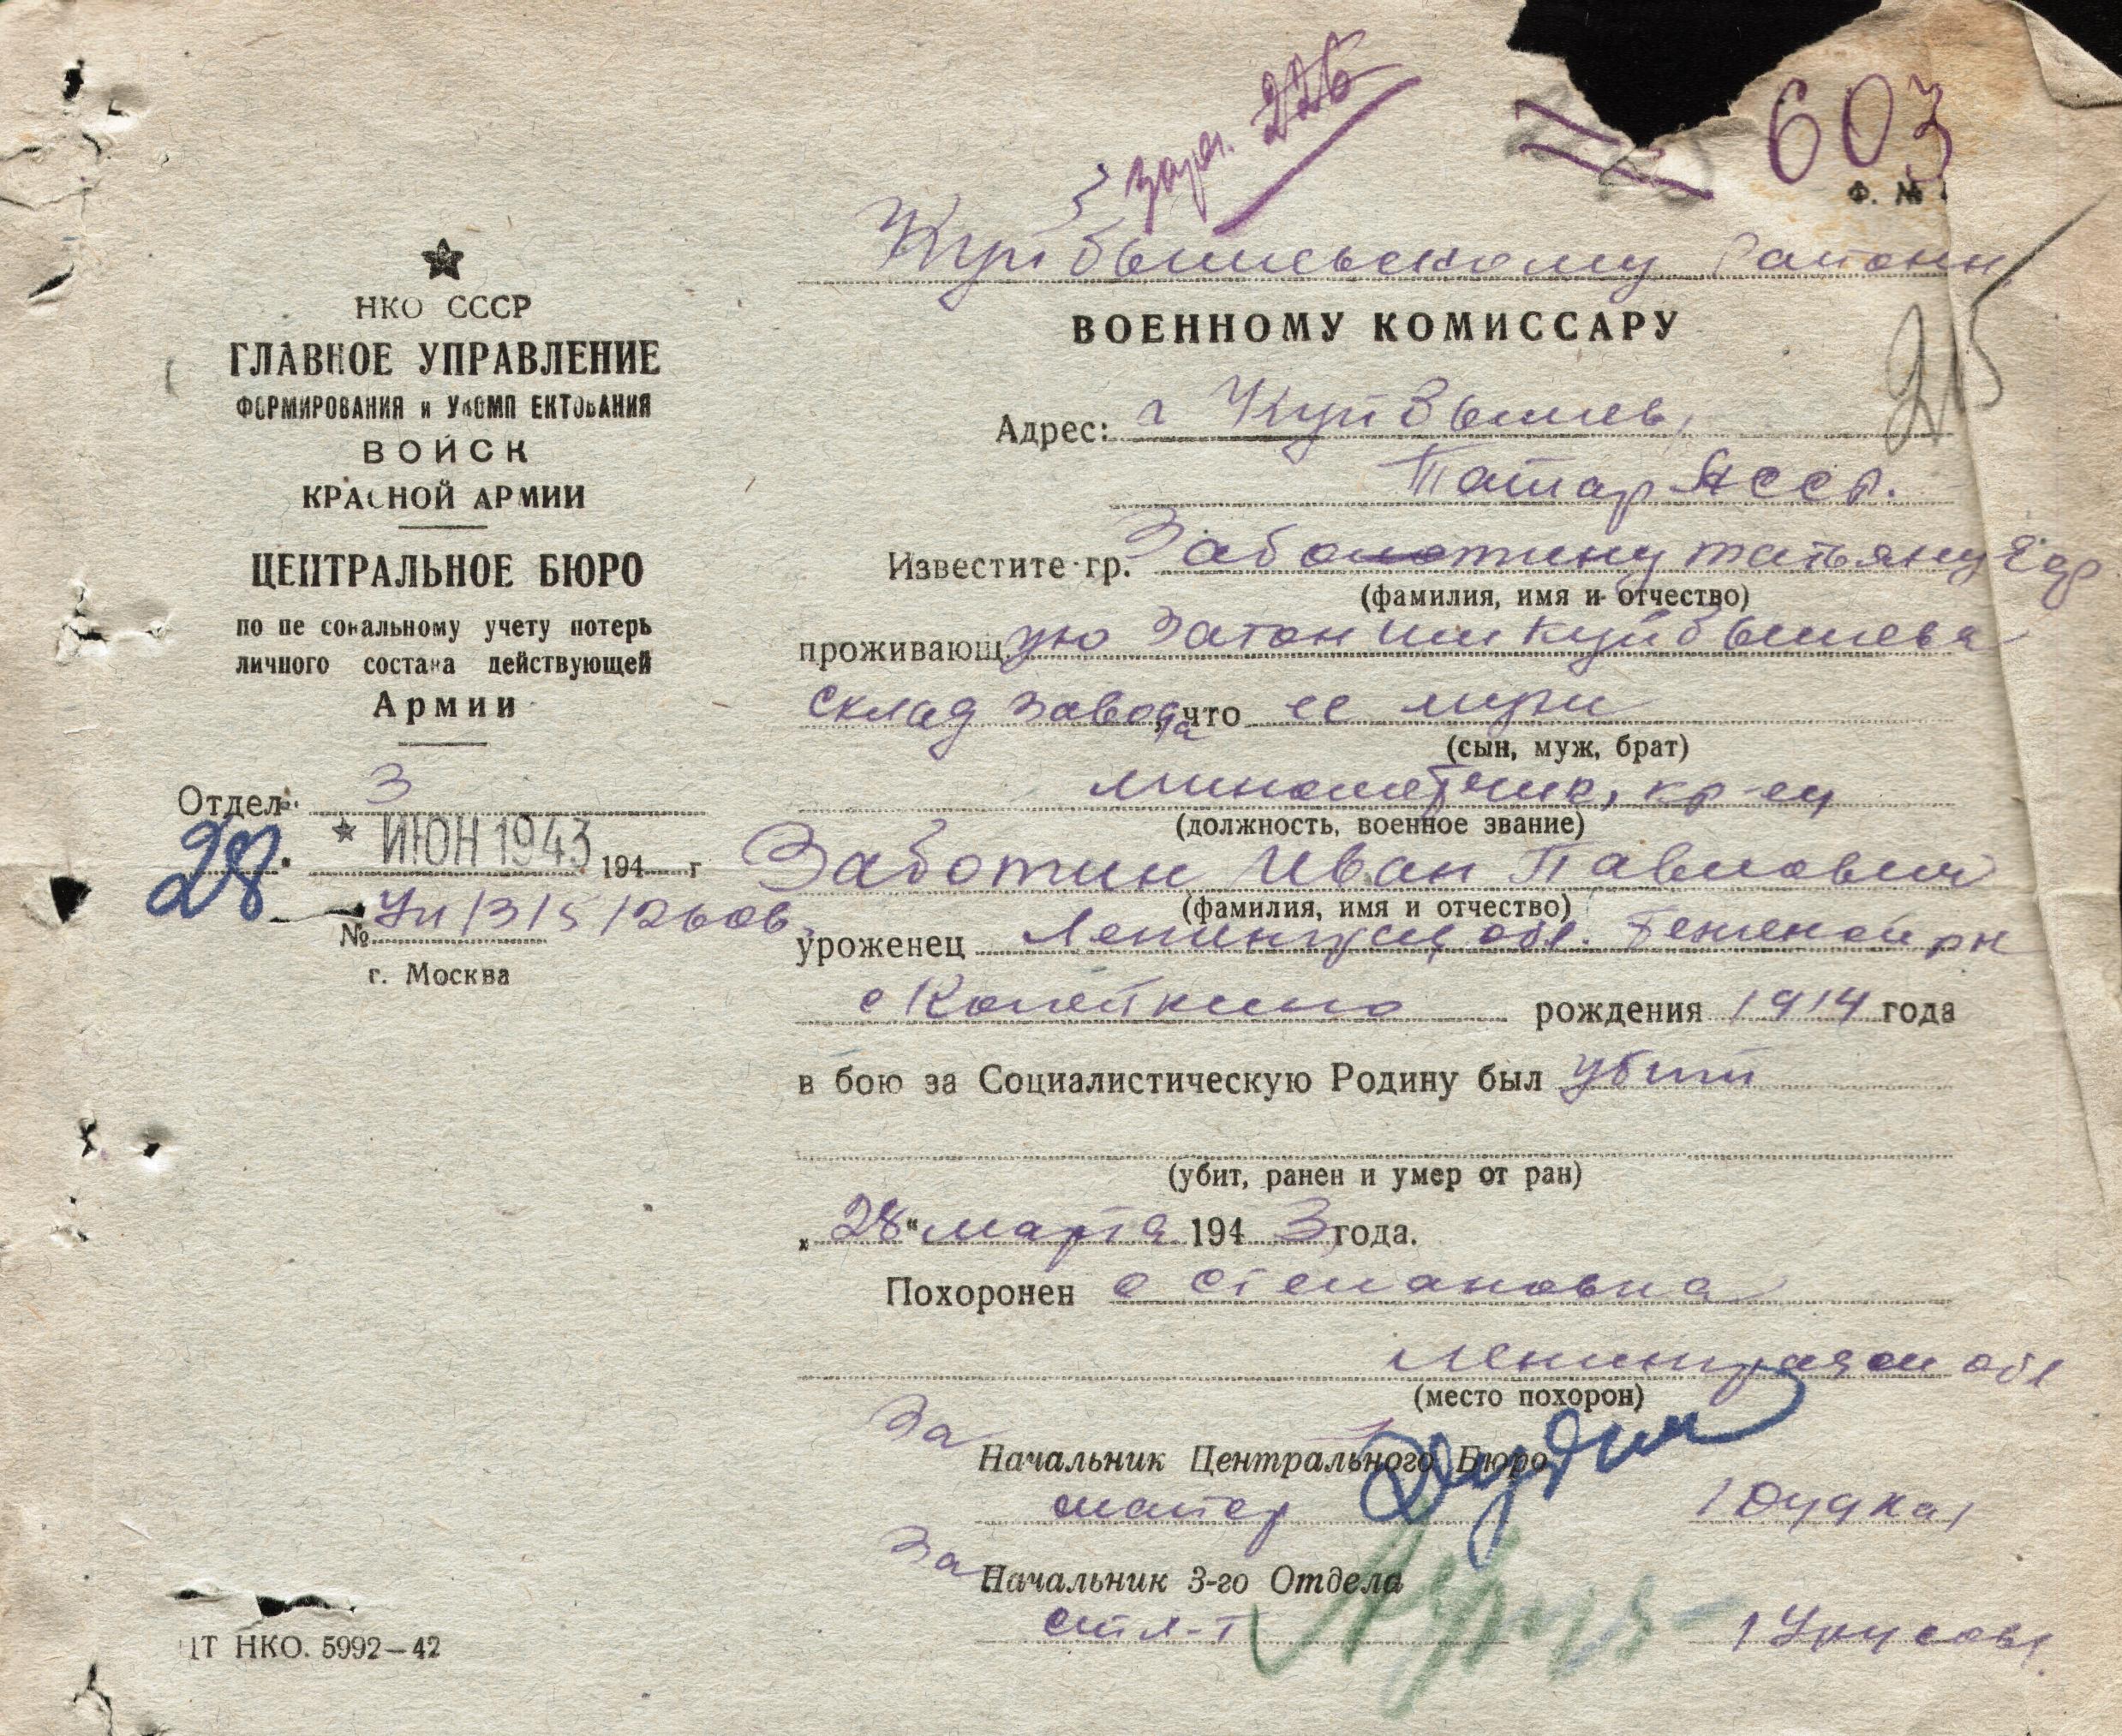 зарег. 226
603
Ф. №
НКО СССР
ГЛАВНОЕ УПРАВЛЕНИЕ
ФОРМИРОВАНИЯ и УКОМПЛЕКТОВАНИЯ
ВОЙСК
КРАСНОЙ АРМИИ
ЦЕНТРАЛЬНОЕ БЮРО
по персональному учету потерь
личного состава действующей
Армии
Отдел 3
28 ★ ИЮН 1943 194 г
№
г. Москва
ЦТ НКО. 5992—42
Куйбышевскому Районн
ВОЕННОМУ КОМИССАРУ
215
Адрес: г Куйбышев,
Татар АССР.
Известите гр. Заботину татьяну Егр
(фамилия, имя и отчество)
проживающ. ую Затон им Куйбышева
склад завода, что ее муж
(сын, муж, брат)
минометчик, кр-ец
(должность, военное звание)
Заботин Иван Павлович
(фамилия, имя и отчество)
уроженец обл. рн
с рождения 1914 года
в бою за Социалистическую Родину был убит
(убит, ранен и умер от ран)
„28“ марта 1943 года.
Похоронен с Степановка
Ленинградской обл
(место похорон)
За
Начальник Центрального Бюро
майор /Дудка/
За
Начальник 3-го Отдела
ст л-т